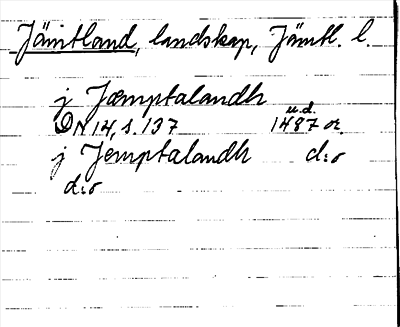 Jämtland, landskap, Jämtl. l.
j Jæmptalandh
u.d.
DN 14, s. 137 1487 or.
j Jemptalandh d:o
d:o